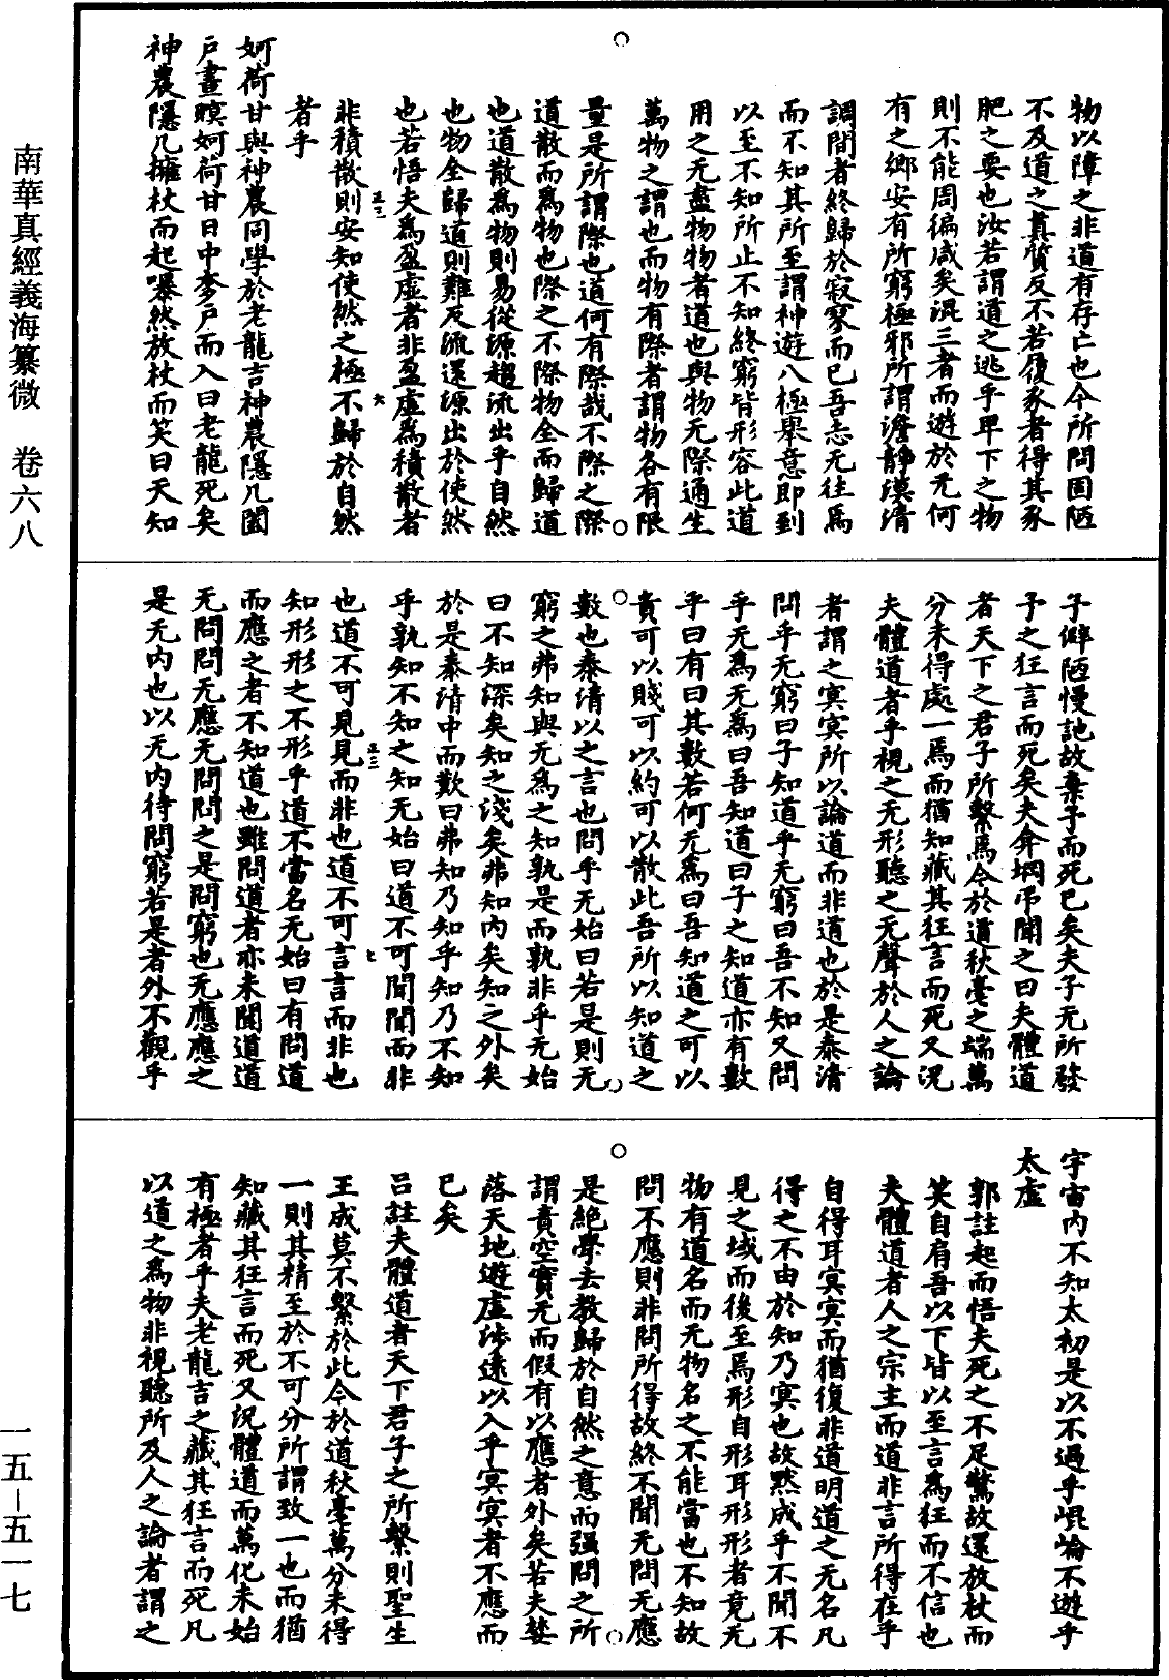 物以障之非道有存亡也今所問固陋
不及道之真質反不若履豕者得其豕
肥之要也汝若謂道之逃乎卑下之物
則不能周徧咸矣混三者而遊於无何
有之鄉安有所窮極邪所謂澹靜漠清
調閒者終歸於寂寥而已吾志无往焉
而不知其所至謂神遊八極舉意即到
以至不知所止不知終窮皆形容此道
用之无盡物物者道也與物无際通生
萬物之謂也而物有際者謂物各有限
量是所謂際也道何有際哉不際之際
道散而為物也際之不際物全而歸道
也道散為物則易從源趨流出乎自然
也物全歸道則難反流還源出於使然
也若悟夫為盈虛者非盈虛為積散者
非積散則安知使然之極不歸於自然
者乎
妸荷甘與神農同學於老龍吉神農隱几闔
戶晝瞑妸荷甘日中奓戶而入曰老龍死矣
神農隱几擁杖而起曝然放杖而笑曰天知
子僻陋慢訑故棄予而死已矣夫子无所發
予之狂言而死矣夫弇堈弔聞之曰夫體道
者天下之君子所繫焉今於道秋毫之端萬
分未得處一焉而猶知藏其狂言而死又況
夫體道者乎視之无形聽之无聲於人之論
者謂之冥冥所以論道而非道也於是泰清
問乎无窮曰子知道乎无窮曰吾不知又問
乎无為无為曰吾知道曰子之知道亦有數
乎曰有曰其數若何无為曰吾知道之可以
貴可以賤可以約可以散此吾所以知道之
數也泰清以之言也問乎无始曰若是則无
窮之弗知與无為之知孰是而孰非乎无始
曰不知深矣知之淺矣弗知內矣知之外矣
於是泰清中而歎曰弗知乃知乎知乃不知
乎孰知不知之知无始曰道不可聞聞而非
也道不可見見而非也道不可言言而非也
知形形之不形乎道不當名无始曰有問道
而應之者不知道也雖問道者亦未聞道道
无問問无應无問問之是問窮也无應應之
是无內也以无內待問窮若是者外不觀乎
宇宙內不知太初是以不過乎崐崘不遊乎
太虛
郭註起而悟夫死之不足驚故還放杖而
笑自肩吾以下皆以至言為狂而不信也
夫體道者人之宗主而道非言所得在乎
自得耳冥冥而猶復非道明道之无名凡
得之不由於知乃冥也故默成乎不聞不
見之域而後至焉形自形耳形形者竟无
物有道名而无物名之不能當也不知故
問不應則非問所得故終不聞无問无應
是絕學去教歸於自然之意而强問之所
謂責空實无而假有以應者外矣若夫婪
落天地遊虛涉遠以入乎冥冥者不應而
已矣
呂註夫體道者天下君子之所繫則聖生
王成莫不繫於此今於道秋毫萬分未得
一則其精至於不可分所謂致一也而猶
知藏其狂言而死又況體道而萬化未始
有極者乎夫老龍吉之藏其狂言而死凡
以道之為物非視聽所及人之論者謂之
南華真經義海纂微　卷六八
一五—五一七
正三
六
正三
七